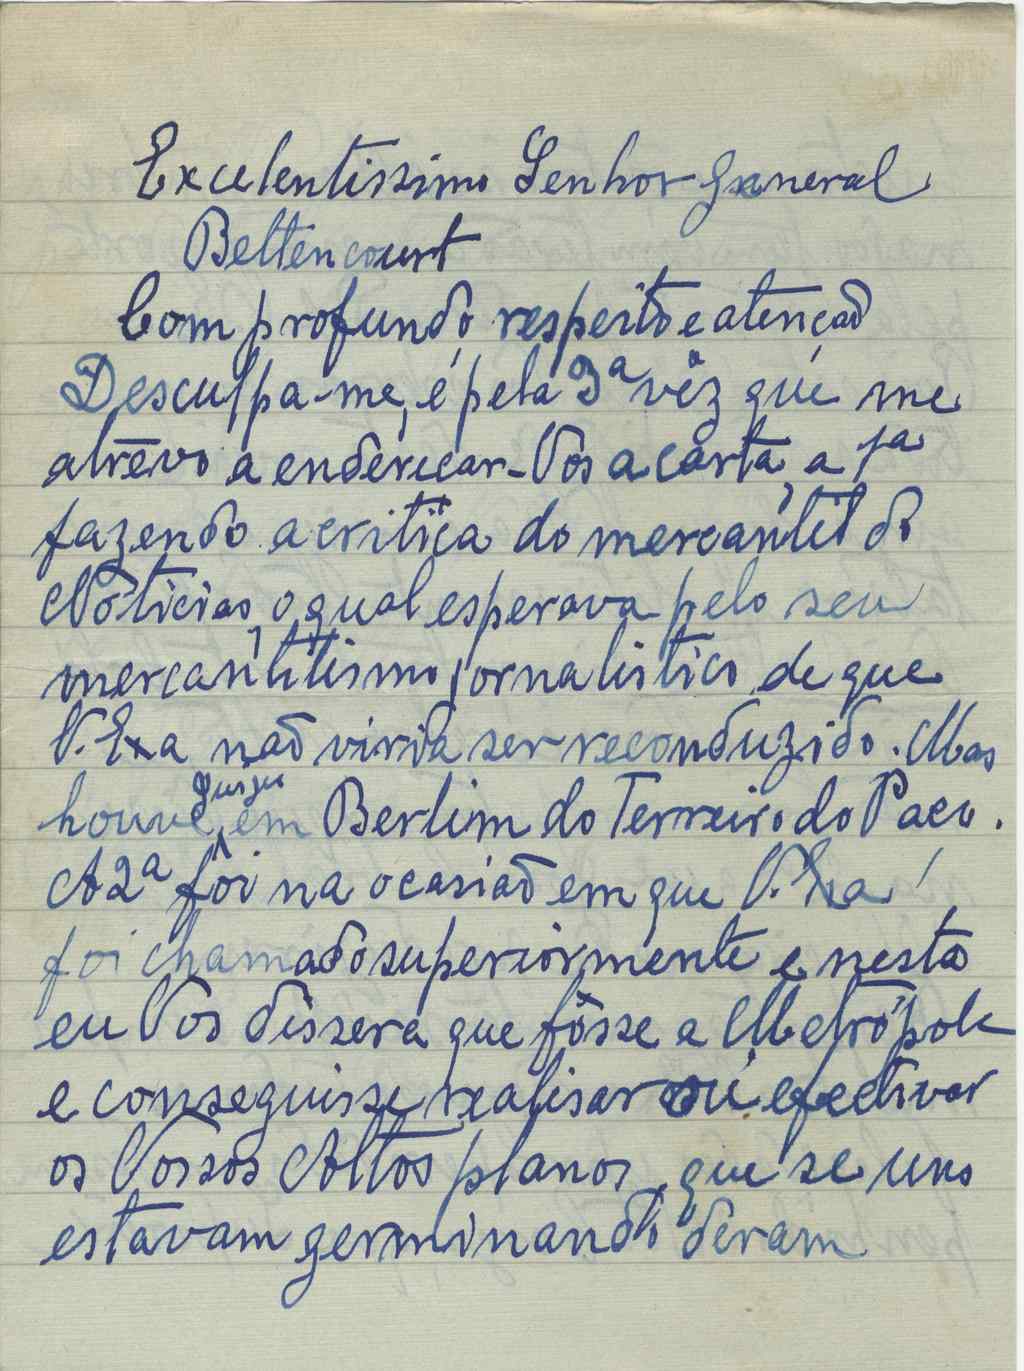 Excelentissimo Senhor General
Bettencourt
Com profundo respeito e atenção
Desculpa-me, é pela 3ª vêz que me
atrêvo a endereçar-Vos a carta, a 1ª
fazendo a critica do mercantil do
Noticias, o qual esperava pelo seu
mercantilismo jornalistico, de que
V. Exa não viria ser reconduzido. Mas
houve juizes em Berlim do Terreiro do Paço.
A 2ª fôi na ocasião em que V. Exa
foi chamado superiormente e nesta
eu Vos dissera que fôsse a Metrópole
e conseguisse realisar ou efectivar
os Vossos Altos planos, que se uns
estavam germinando deram